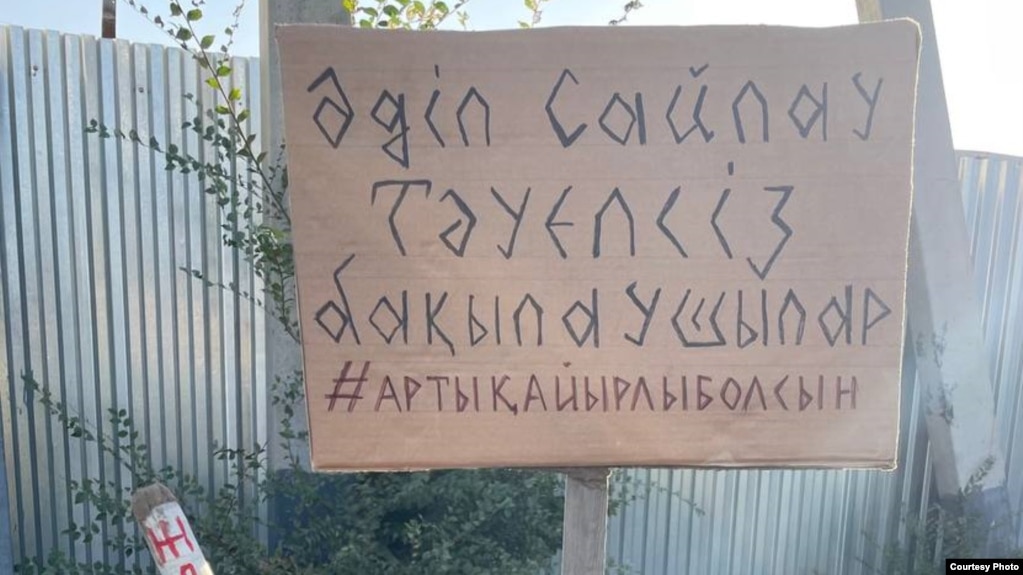 Әділ Сайлау
Тәуелсіз
бақылаушылар
#АРТЫҚАЙЫРЛЫБОЛСЫН
Ж
Courtesy Photo